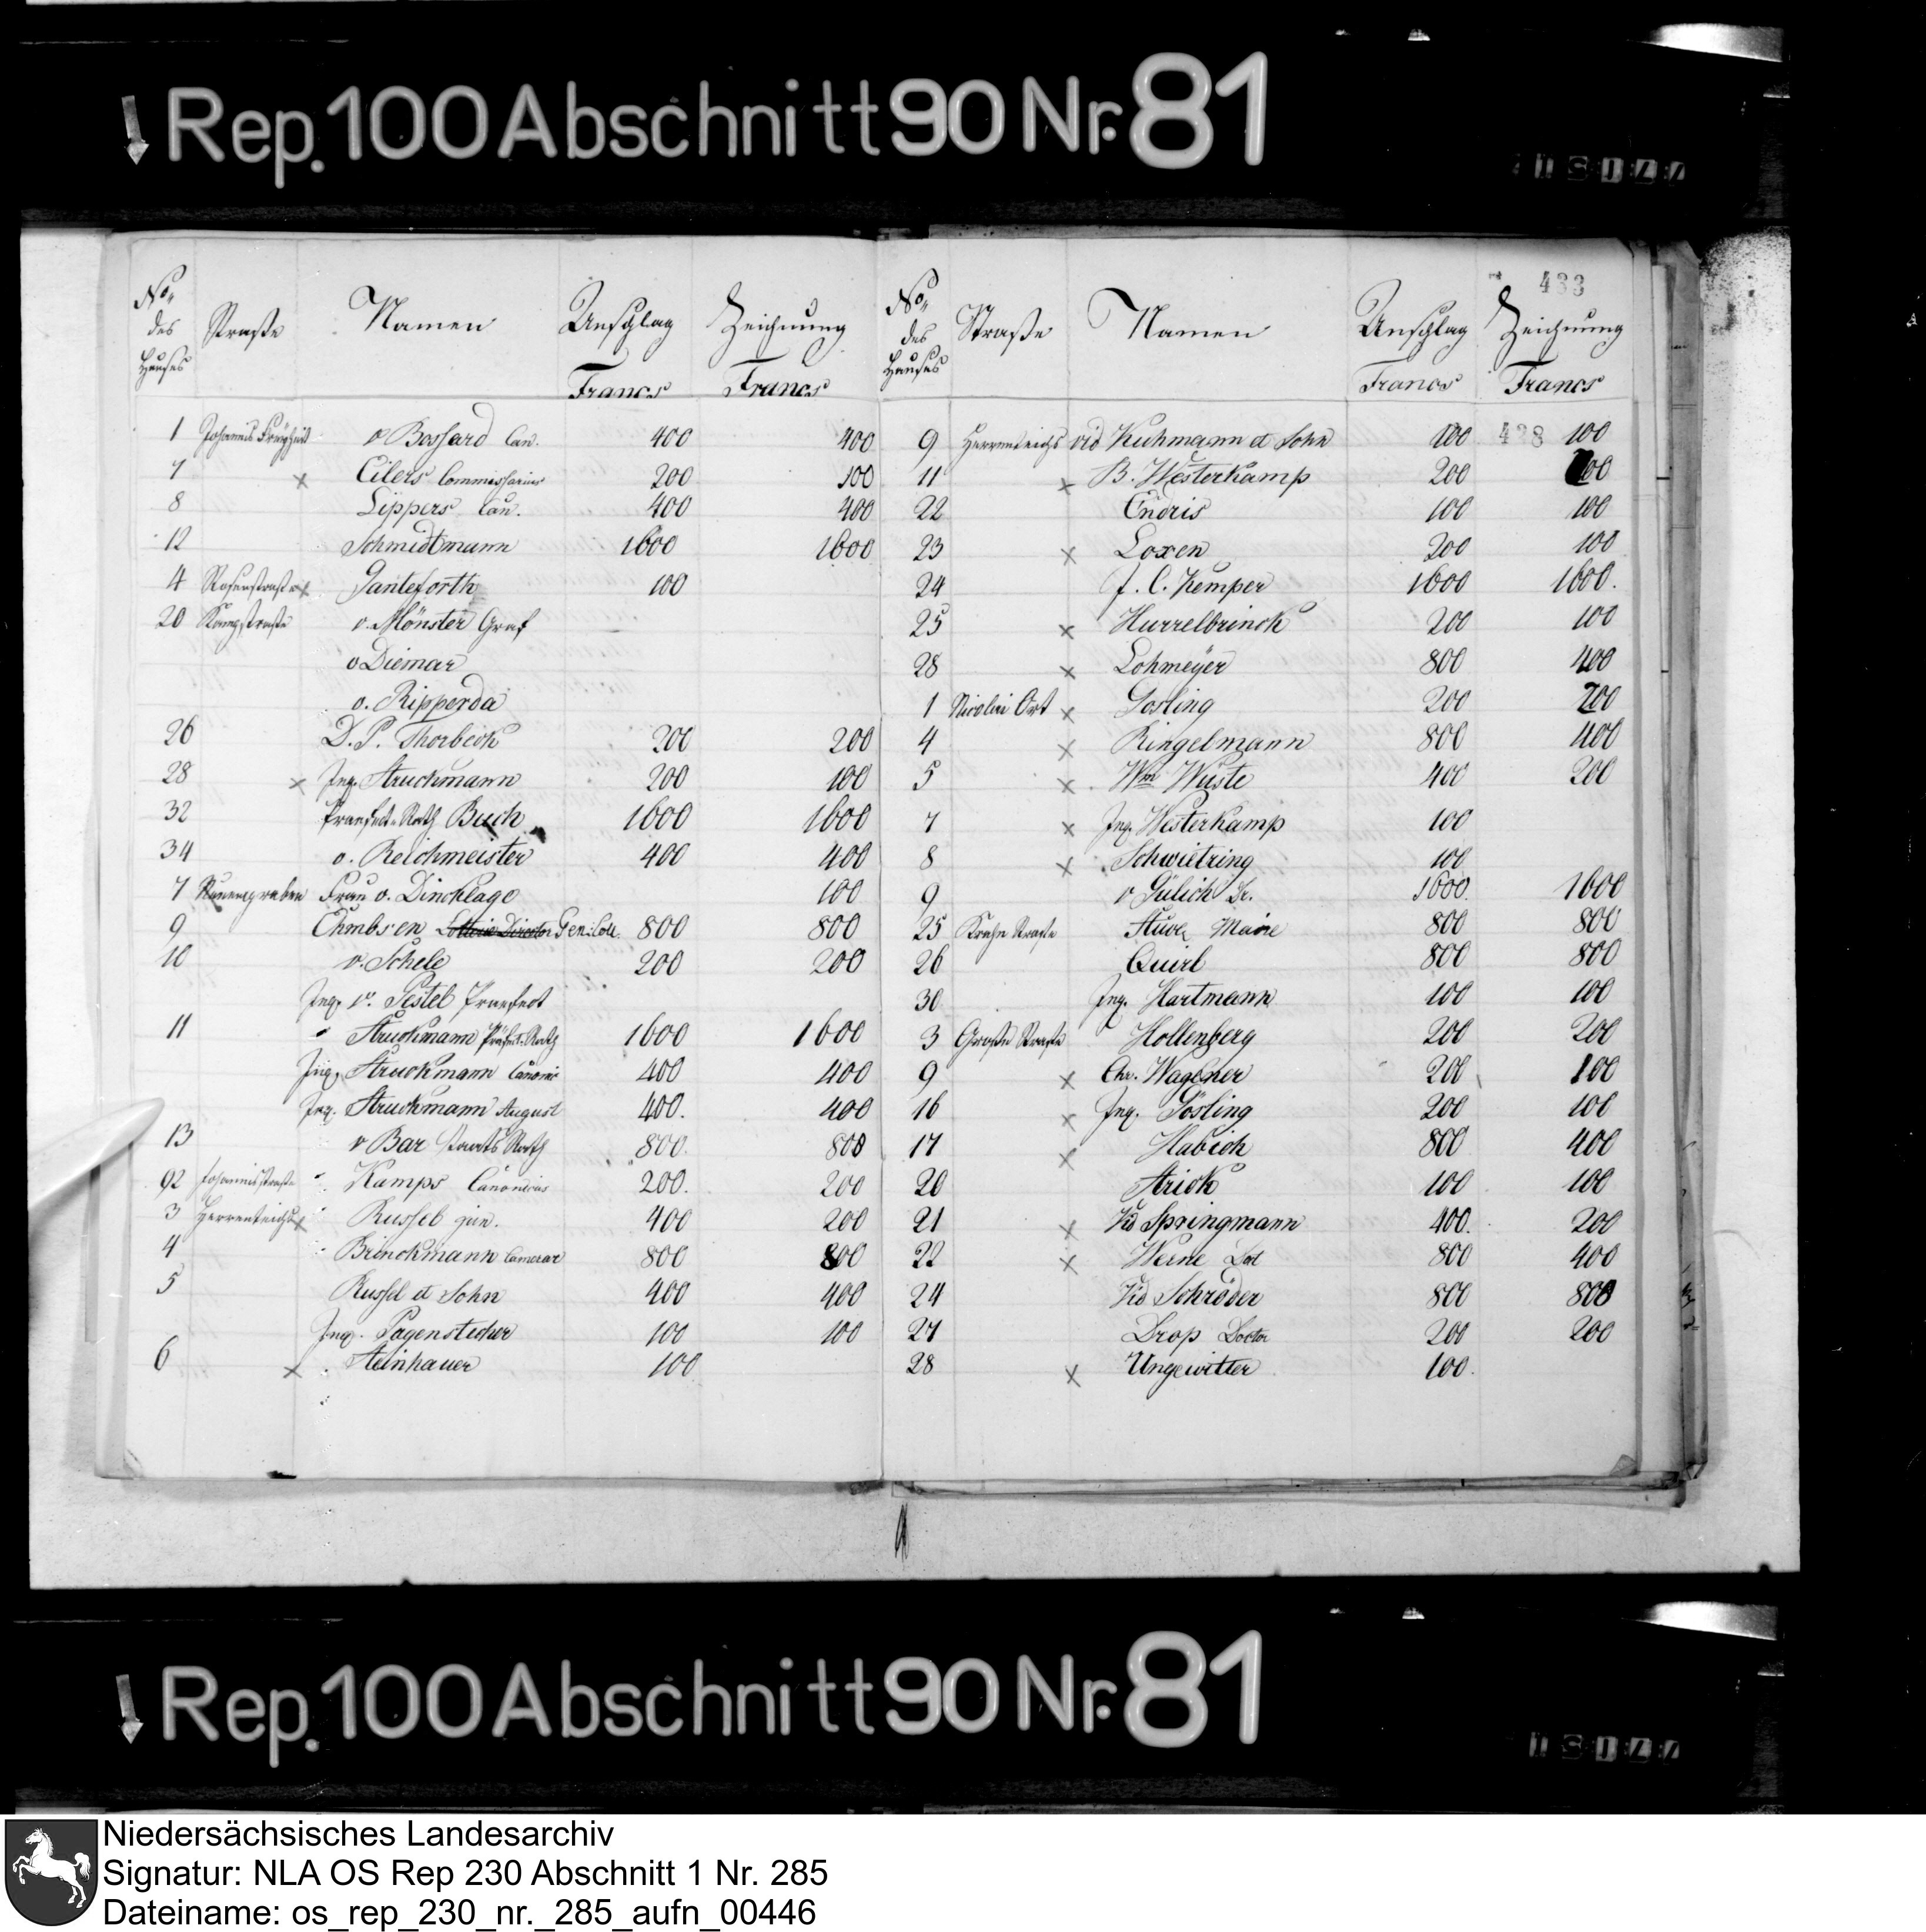 Rep. 100 Abschnitt 90 Nr. 81
433
No. des Hauses Straße Namen Anschlag Francs Zeichnung Francs
1 Johannis Freyheit v Bossard Can. 400 400
7 x Eilers Commissarius 200 100
8 Lippers Can. 400 400
12 Schmidtmann 1600 1600
4 Rosenstraße x Ganteforth 100
20 Kampstraße v. Mönster Graf
v Diemar
v. Ripperda
26 D. P. Thorbeck 200 200
28 x Inq. Struckmann 200 100
32 Praefect-Rath Buch 1600 1600
34 v. Reichmeister 400 400
7 Neuengraben Frau v. Dincklage 100
9 Ehmbsen Lotterie Director Gen: 800 800
10 v. Schele 200 200
Inq. v. Pestel Praefect
11 Struckmann Präfect-Rath 1600 1600
Inq. Struckmann Canonic 400 400
Inq. Struckmann August 400. 400
13 v Bar Staats Rath 800. 800
92 Johannisstraße Kamps Canonicus 200. 200
3 Herrenteichs x Russel jun. 400 200
4 Brinckmann Camerar 800 800
5 Russel et Sohn 400 400
Inq. Pagenstecher 100 100
6 x Steinhauer 100
No. des Hauses Straße Namen Anschlag Francs Zeichnung Francs
9 Herrenteichs vid Kuhmann et Sohn 100 428 100
11 x B. Westerkamp 200 200
22 Endris 100 100
23 x Loxen 200 100
24 J. C. Kemper 1600 1600.
25 x Hurrelbrinck 200 100
28 x Lohmeyer 800 400
1 Nicolai Ort x Gosling 200 200
4 x Ringelmann 800 400
5 x Wm Wüste 400 200
7 x Inq. Westerkamp 100
8 x Schwietring 100
9 v Gülich Dr. 1600. 1600
25 Krahn Straße Stüve Maire 800 800
26 Quirl 800 800
30 Inq. Hartmann 100 100
3 Große Straße Hollenberg 200 200
9 x Chr. Wagener 200 100
16 x Inq. Gösling 200 100
17 x Habich 800 400
20 Strick 100 100
21 x Vid Springmann 400. 200
22 x Werne 800 400
24 Vid Schröder 800 800
27 Drop Doctor 200 200
28 x Ungewitter 100.
Rep. 100 Abschnitt 90 Nr. 81
Niedersächsisches Landesarchiv
Signatur: NLA OS Rep 230 Abschnitt 1 Nr. 285
Dateiname: os_rep_230_nr._285_aufn_00446